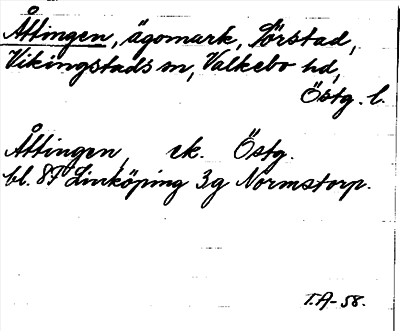 Åttingen, ägomark, Sörstad,
Vikingstads sn, Valkebo hd,
Östg. l.
Åttingen, ek. Östg.
bl. 8F Linköping 3g Normstorp.
T.A-58.